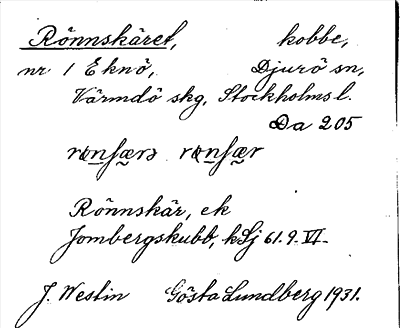 Rönnskäret, kobbe,
nr 1 Eknö, Djurö sn,
Värmdö skg, Stockholms l.
Da 205
Rönnskär, ek
Jombergskubb, kSj 61.9.VI.
J. Westin Gösta Lundberg 1931.